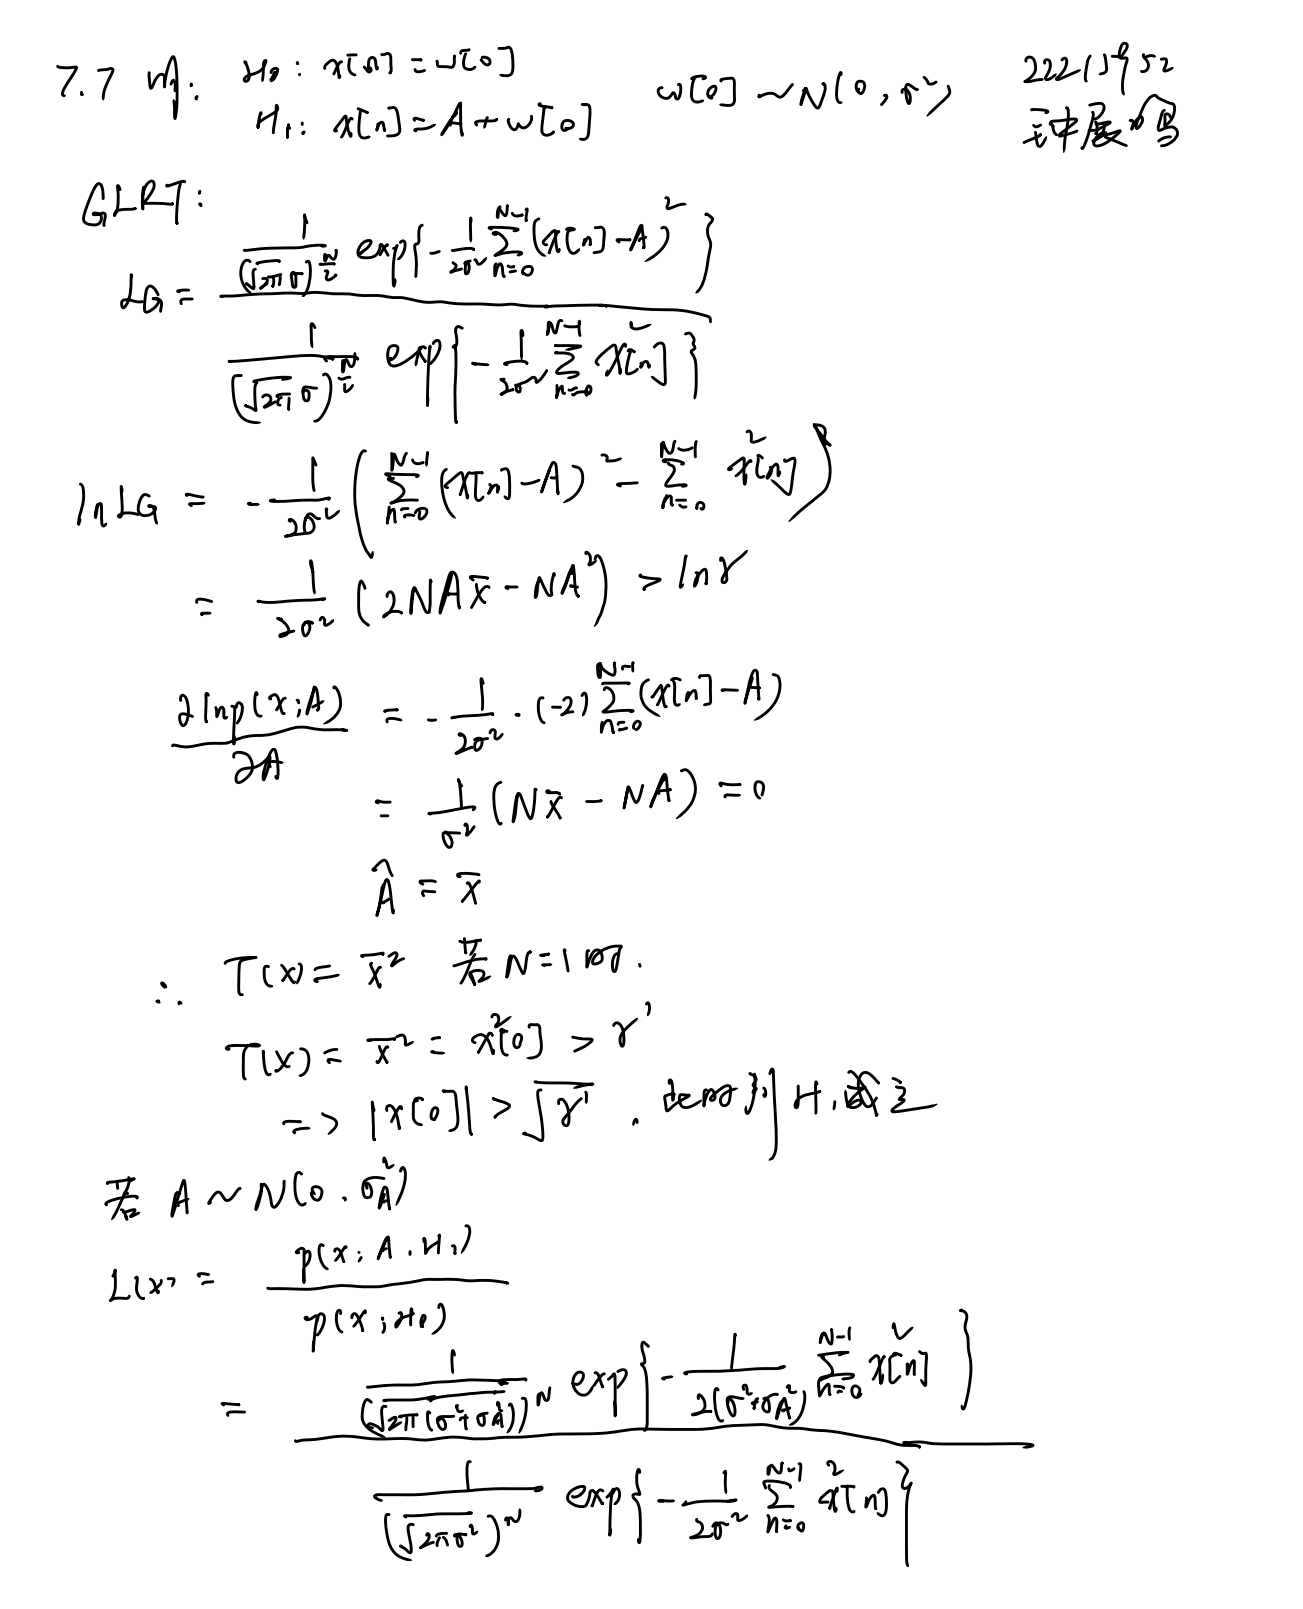 7.7 解: H₀: x[n] = w[0]
H₁: x[n] = A + w[0]
w[0] ~ N(0, σ²)
GLRT:
LG = \frac{\frac{1}{(\sqrt{2π}σ)^{\frac{N}{2}}} exp{-\frac{1}{2σ²} \sum_{n=0}^{N-1} (x[n]-A)²}}{\frac{1}{(\sqrt{2π}σ)^{\frac{N}{2}}} exp{-\frac{1}{2σ²} \sum_{n=0}^{N-1} x²[n]}}
ln LG = -\frac{1}{2σ²} ( \sum_{n=0}^{N-1} (x[n]-A)² - \sum_{n=0}^{N-1} x²[n] )
= \frac{1}{2σ²} (2NA\bar{x} - NA²) > lnγ
\frac{∂lnp(x;A)}{∂A} = -\frac{1}{2σ²} · (-2) \sum_{n=0}^{N-1} (x[n]-A)
= \frac{1}{σ²} (N\bar{x} - NA) = 0
\hat{A} = \bar{x}
∴ T(x) = \bar{x}² 若 N=1 时.
T(x) = \bar{x}² = x²[0] > γ'
=> |x[0]| > \sqrt{γ'} . H₁ 成立
若 A ~ N(0, σ_A²)
L(x) = \frac{p(x; A, H₁)}{p(x; H₀)}
= \frac{\frac{1}{(\sqrt{2π(σ²+σ_A²)})^N} exp{-\frac{1}{2(σ²+σ_A²)} \sum_{n=0}^{N-1} x²[n]}}{\frac{1}{(\sqrt{2πσ²})^N} exp{-\frac{1}{2σ²} \sum_{n=0}^{N-1} x²[n]}}